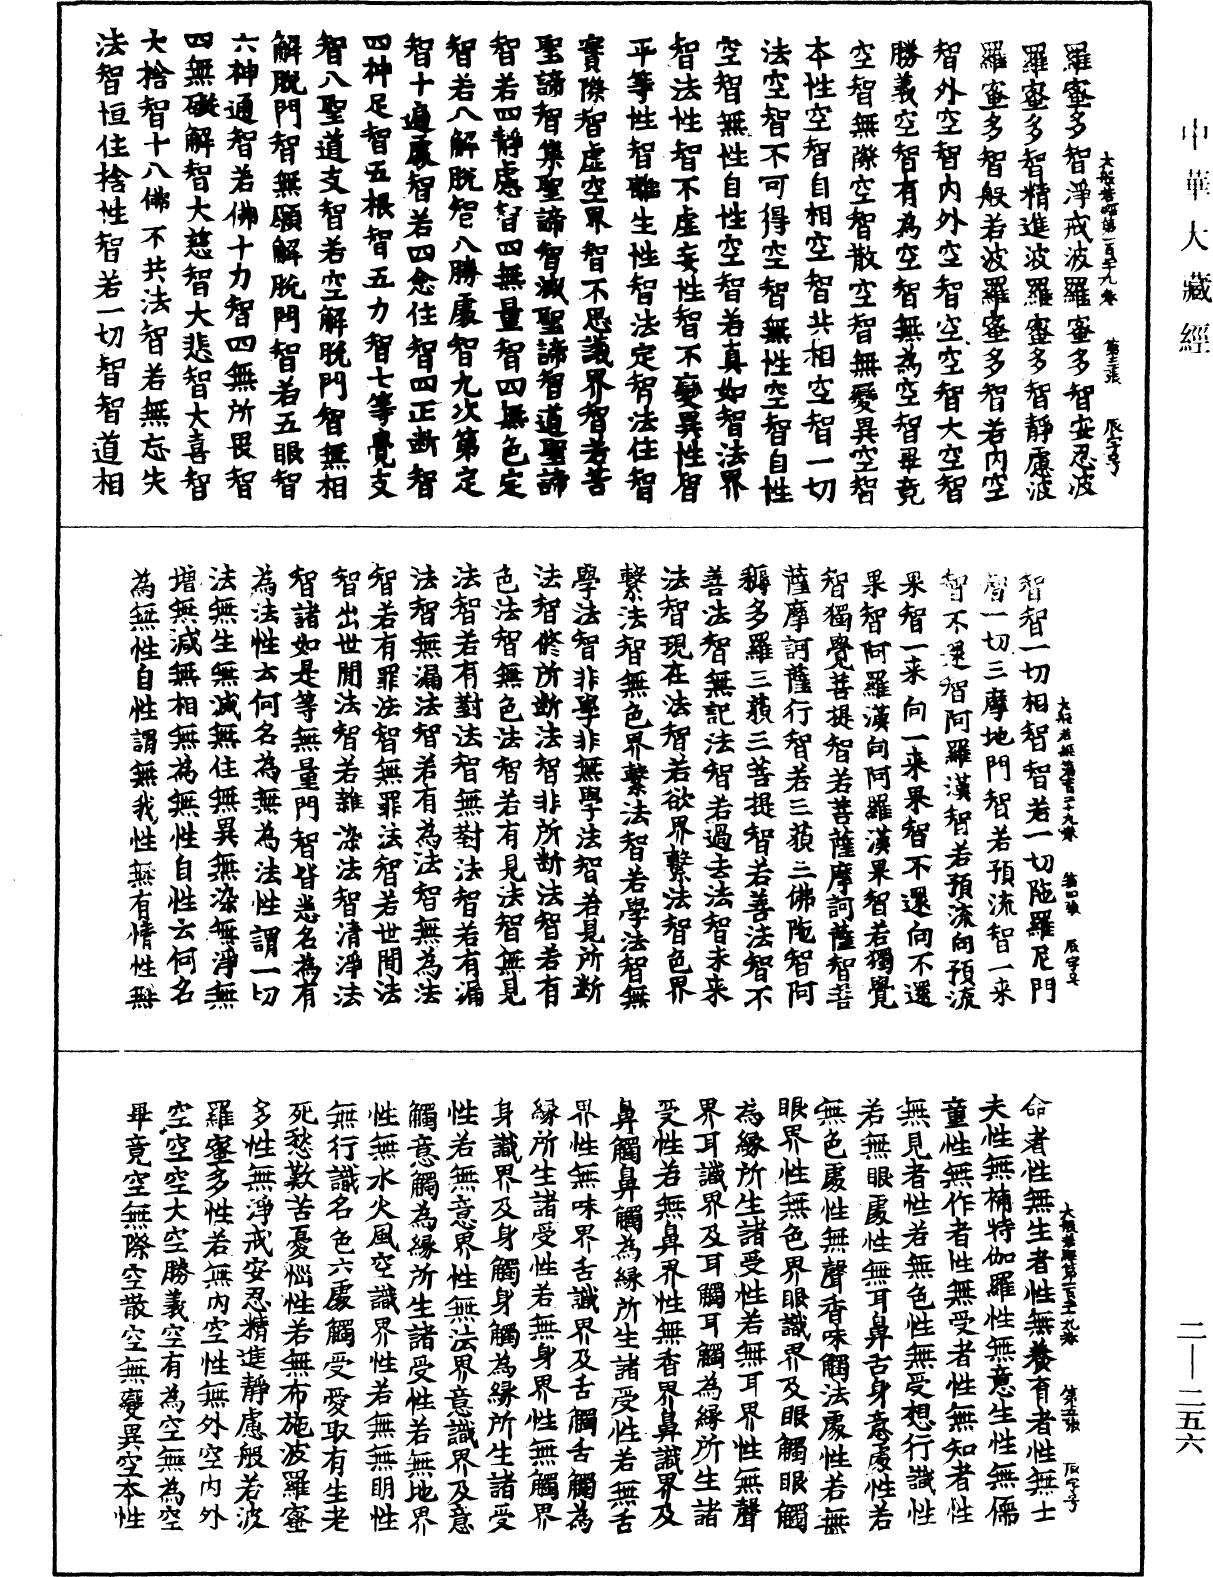 中華大藏經
羅蜜多智淨戒波羅蜜多智安忍波
羅蜜多智精進波羅蜜多智靜慮波
羅蜜多智般若波羅蜜多智若內空
智外空智內外空智空空智大空智
勝義空智有為空智無為空智畢竟
空智無際空智散空智無變異空智
本性空智自相空智共相空智一切
法空智不可得空智無性空智自性
空智無性自性空智若真如智法界
智法性智不虛妄性智不變異性智
平等性智離生性智法定智法住智
實際智虛空界智不思議界智若苦
聖諦智集聖諦智滅聖諦智道聖諦
智若四靜慮智四無量智四無色定
智若八解脫智八勝處智九次第定
智十遍處智若四念住智四正斷智
四神足智五根智五力智七等覺支
智八聖道支智若空解脫門智無相
解脫門智無願解脫門智若五眼智
六神通智若佛十力智四無所畏智
四無礙解智大慈智大悲智大喜智
大捨智十八佛不共法智若無忘失
法智恒住捨性智若一切智智道相
大般若經第一百二十九卷 第三張 辰字号
智智一切相智智若一切陁羅尼門
智一切三摩地門智若預流智一来
智不還智阿羅漢智若預流向預流
果智一来向一来果智不還向不還
果智阿羅漢向阿羅漢果智若獨覺
智獨覺菩提智若菩薩摩訶薩智菩
薩摩訶薩行智若三藐三佛陁智阿
耨多羅三藐三菩提智若善法智不
善法智無記法智若過去法智未来
法智現在法智若欲界繫法智色界
繫法智無色界繫法智若學法智無
學法智非學非無學法智若見所斷
法智修所斷法智非所斷法智若有
色法智無色法智若有見法智無見
法智若有對法智無對法智若有漏
法智無漏法智若有為法智無為法
智若有罪法智無罪法智若世間法
智出世間法智若雜染法智清淨法
智諸如是等無量門智皆悉名為有
為法性云何名為無為法性謂一切
法無生無滅無住無異無染無淨無
增無減無相無為無性自性云何名
為無性自性謂無我性無有情性無
大般若經第一百二十九卷 第四張 辰字号
命者性無生者性無養育者性無士
夫性無補特伽羅性無意生性無儒
童性無作者性無受者性無知者性
無見者性若無色性無受想行識性
若無眼處性無耳鼻舌身意處性若
無色處性無聲香味觸法處性若無
眼界性無色界眼識界及眼觸眼觸
為緣所生諸受性若無耳界性無聲
界耳識界及耳觸耳觸為緣所生諸
受性若無鼻界性無香界鼻識界及
鼻觸鼻觸為緣所生諸受性若無舌
界性無味界舌識界及舌觸舌觸為
緣所生諸受性若無身界性無觸界
身識界及身觸身觸為緣所生諸受
性若無意界性無法界意識界及意
觸意觸為緣所生諸受性若無地界
性無水火風空識界性若無無明性
無行識名色六處觸受愛取有生老
死愁歎苦憂惱性若無布施波羅蜜
多性無淨戒安忍精進靜慮般若波
羅蜜多性若無內空性無外空內外
空空空大空勝義空有為空無為空
畢竟空無際空散空無變異空本性
大般若經第一百二十九卷 第五張 辰字号
二—二五六